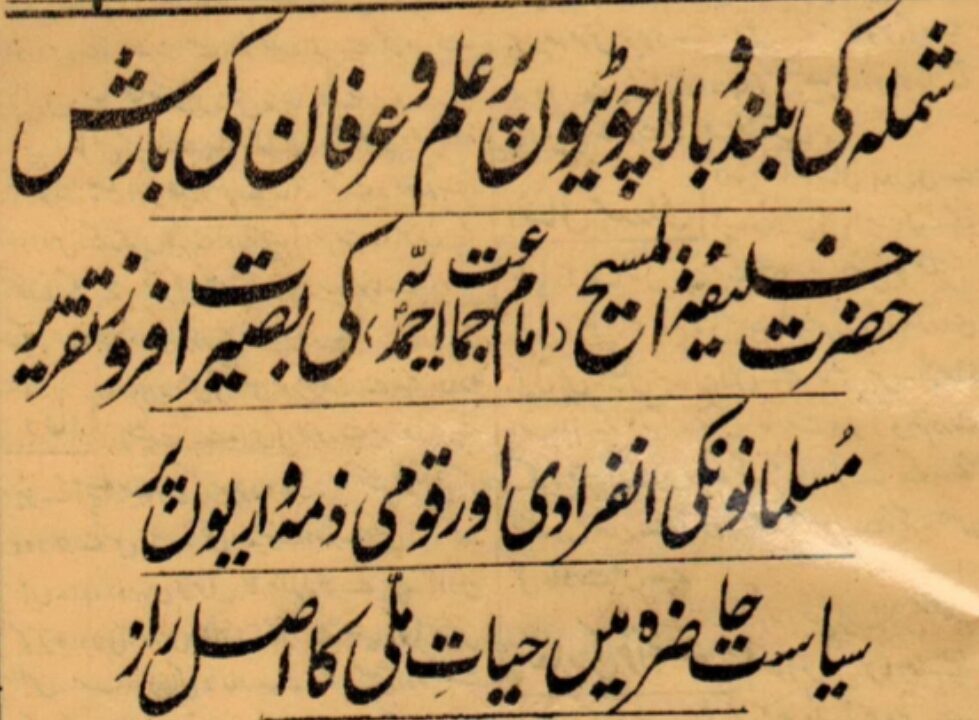 شملہ کی بلند و بالا چوٹیوں پر علم و عرفان کی بارش
حضرت خلیفۃ المسیح (امام جماعت احمدیہ) کی بصیرت افروز تقریر
مُسلمانونکی انفرادی اور قومی ذمہ واریوں پر
سیاست حاضرہ میں حیاتِ ملّی کا اصل راز